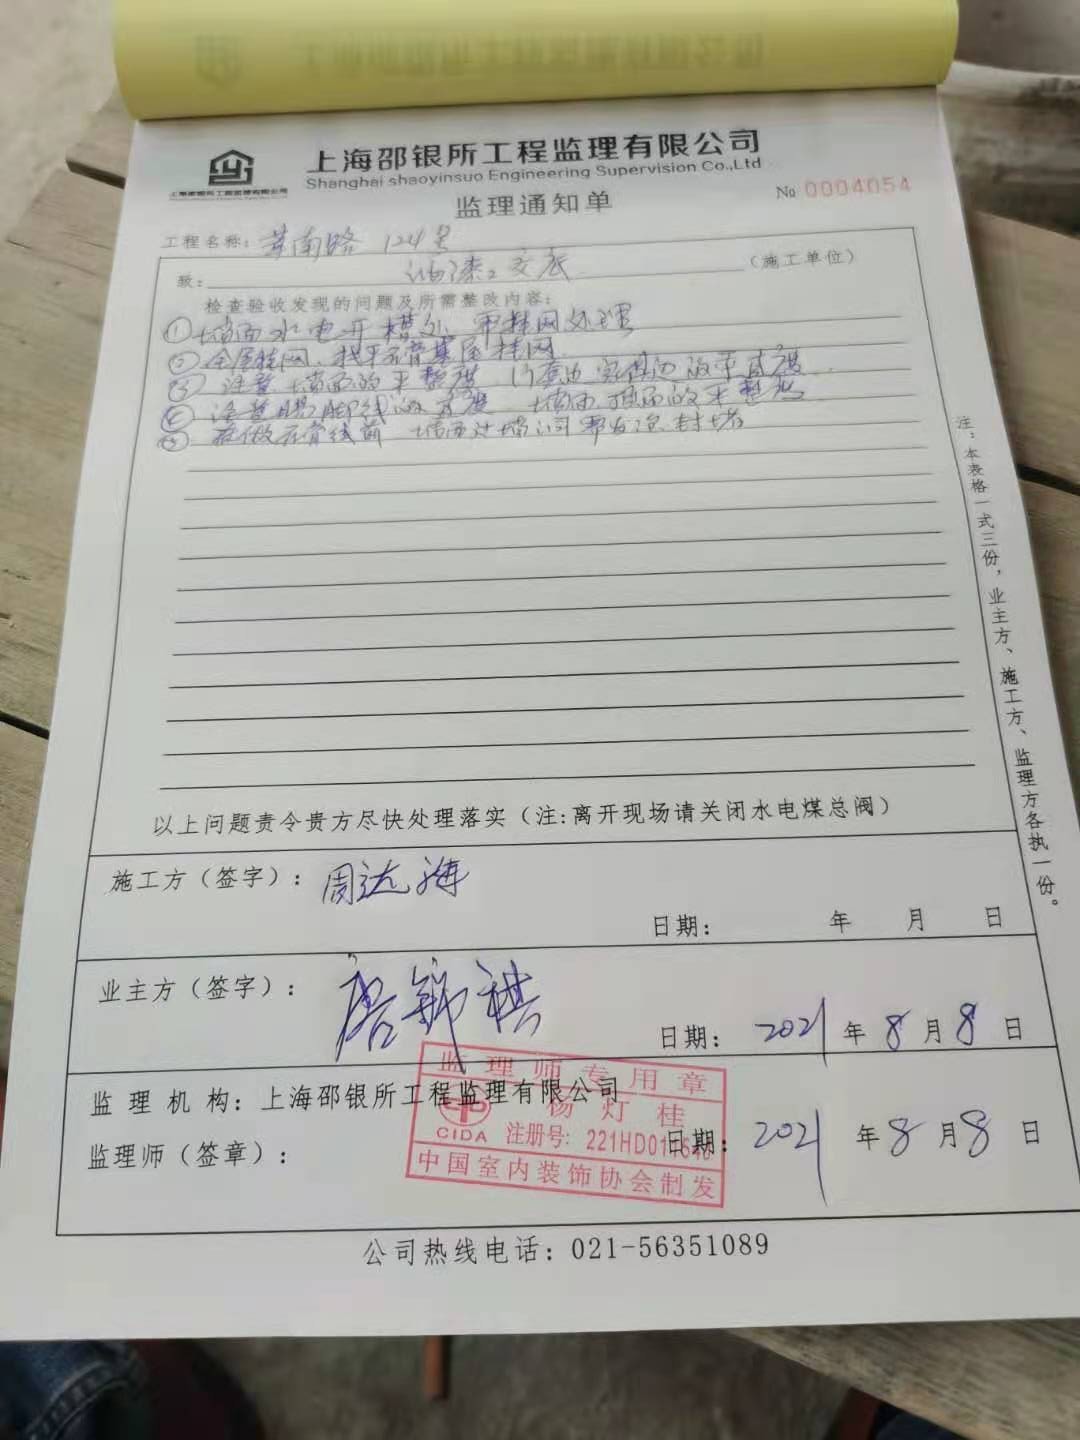 上海邵银所工程监理有限公司
Shanghai shaoyinsuo Engineering Supervision Co.,Ltd
上海邵银所工程监理有限公司
监理通知单
№ 0004054
工程名称: 南路 124号
致: 油漆工交底 (施工单位)
检查验收发现的问题及所需整改内容:
① 墙面水电开槽处 需挂网处理
② 全屋挂网 找平石膏基层挂网
③ 注意墙面的平整度 门套边 边的平直度
④ 注意踢脚线的 度 墙面顶面的平整度
⑤ 在做石膏线前 墙面 封堵
以上问题责令贵方尽快处理落实(注:离开现场请关闭水电煤总阀)
施工方(签字): 周达海
日期: 年 月 日
业主方(签字): 唐锦祺
日期: 2021 年 8 月 8 日
监理机构: 上海邵银所工程监理有限公司
监理师(签章):
日期: 2021 年 8 月 8 日
监理师专用章
杨灯桂
CIDA 注册号: 221HD01
中国室内装饰协会制发
公司热线电话: 021-56351089
注:本表格一式三份,业主方、施工方、监理方各执一份。